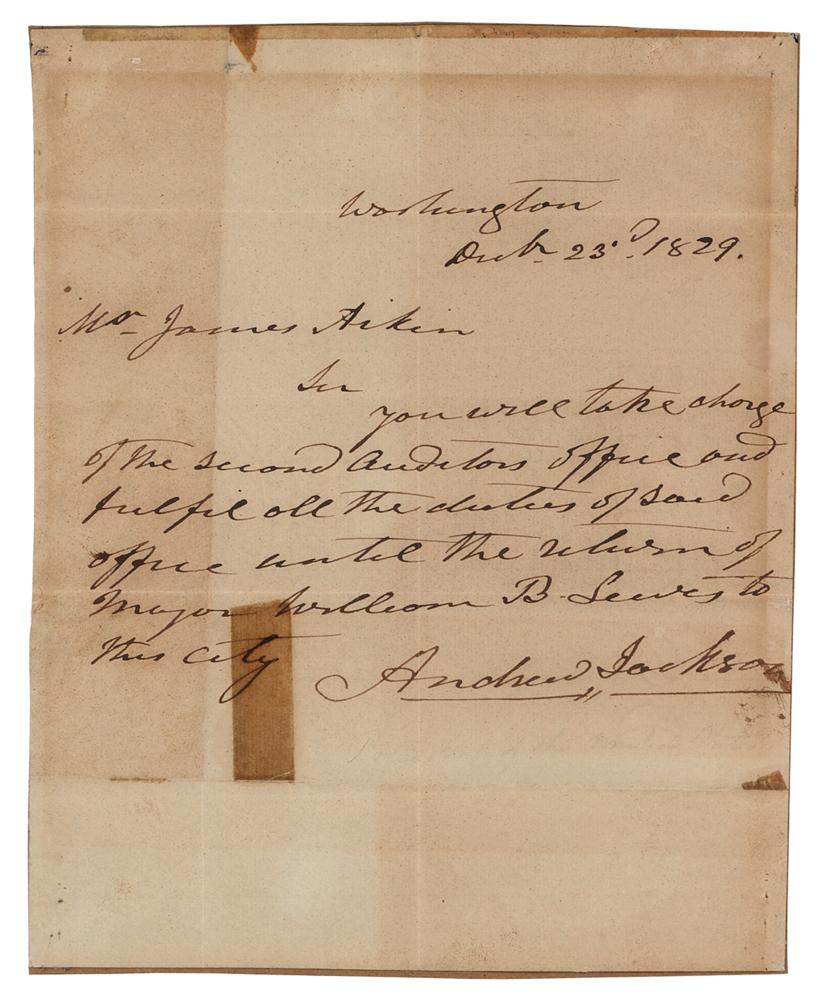 Washington
Decbr 23d. 1829.
Mr James Aikin
Sir
you will take charge
of the second auditors office and
fulfil all the duties of said
office until the return of
Major William B. Lewis to
this city
Andrew Jackson